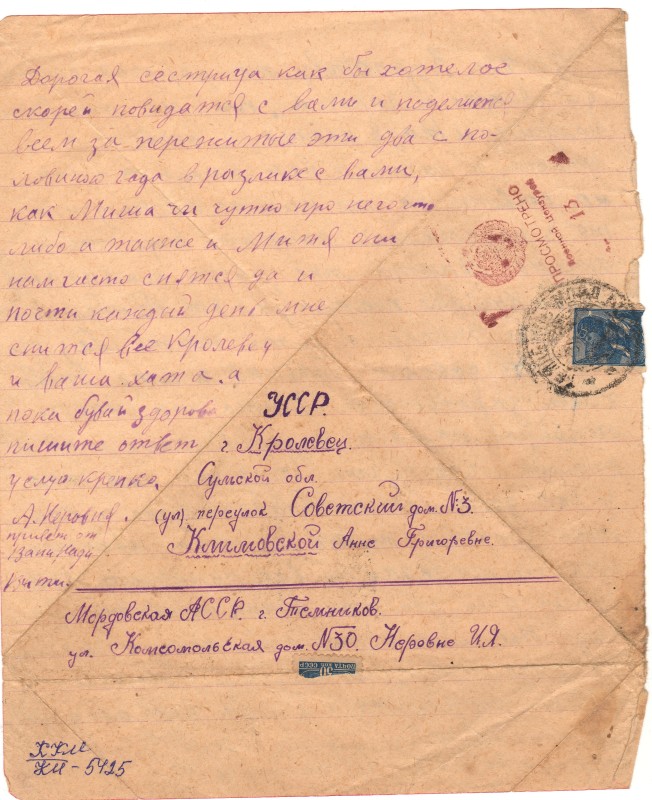 Дорогая сестрица как бы хотелос
скорей повидатся с вами и поделится
всем за пережитые эти два с по-
ловиною года в разлике с вами,
как Миша чи чутно про него что
либо а также и Митя они
нам часто снятся да и
почти каждый день мне
снится все Кролевец
и ваша хата. а
пока бувай здорова
пишите ответ
целую крепко.
А. Неровня.
привет от
Вани, Нади
Вити.
УССР.
г. Кролевец
Сумской обл.
(ул) переулок Советский дом. №3.
Климовской Анне Григоревне.
Мордовская АССР. г. Темников.
ул. Комсомольская дом. №30. Неровне И.Я.
ПРОСМОТРЕНО
Военной Цензурой
13
30
ПОЧТА СССР
ККМ
КН-5425